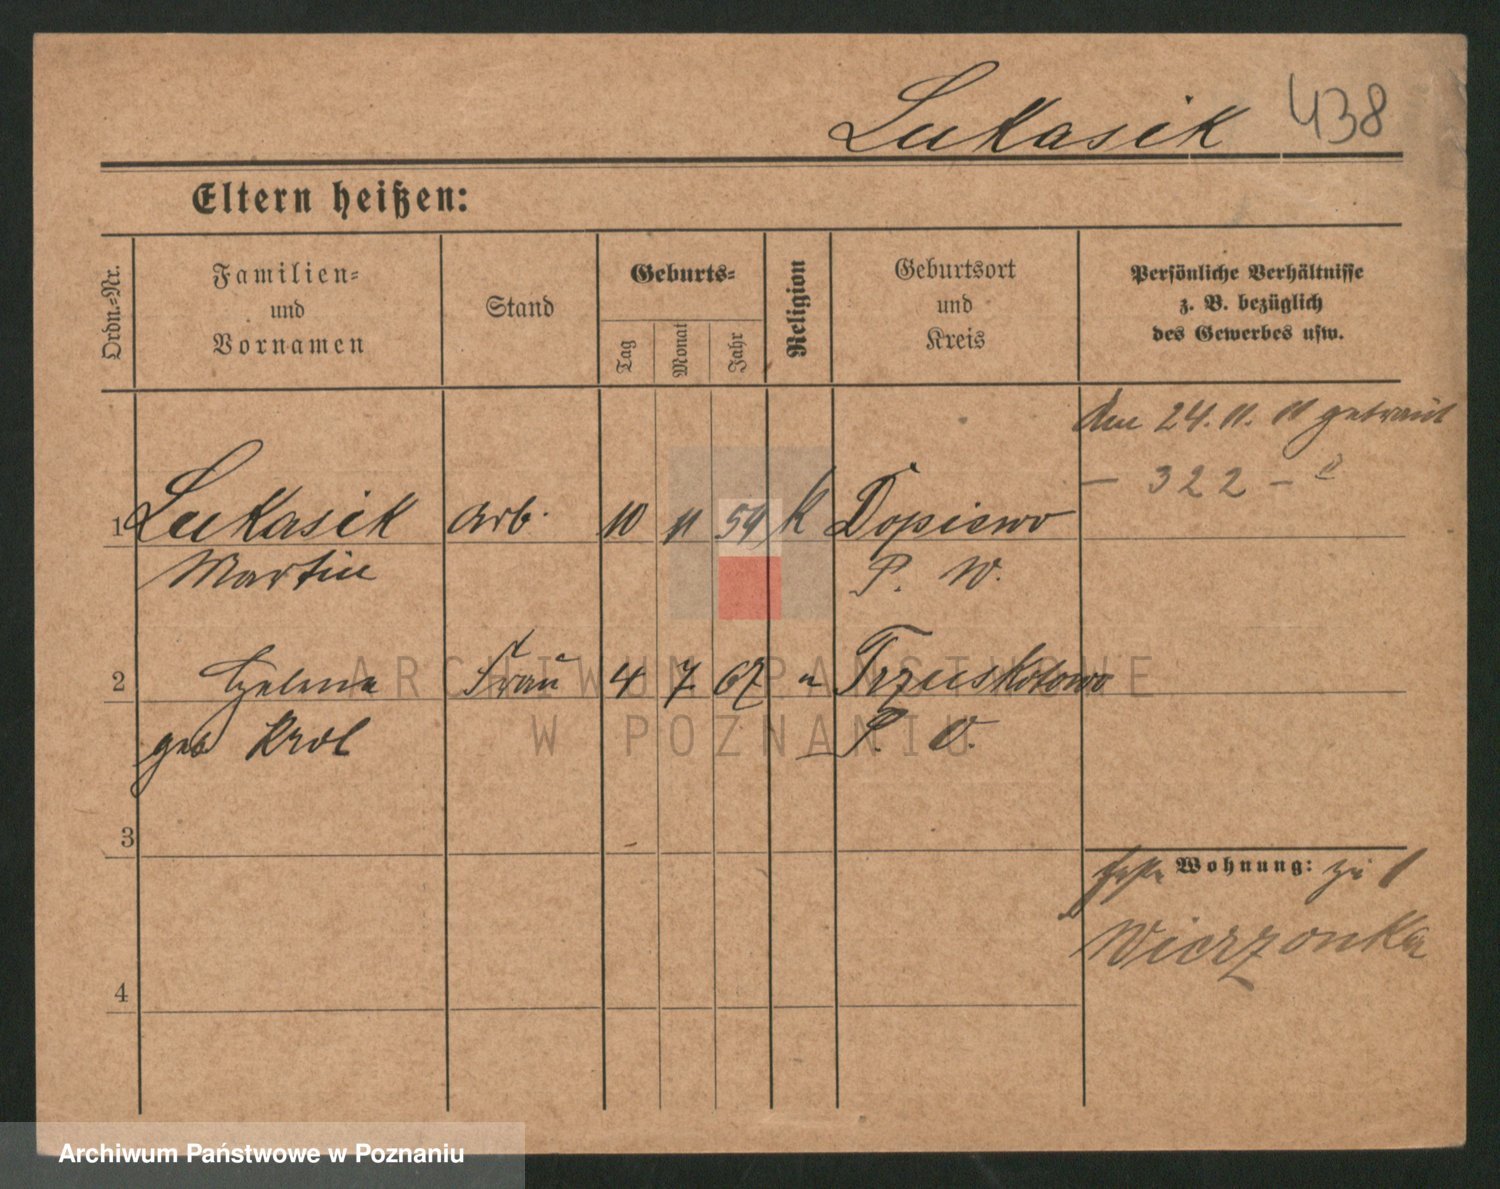 Lukasik 438
Eltern heißen:
Ordn.=Nr.
Familien=
und
Vornamen
Stand
Geburts=
Tag
Monat
Jahr
Religion
Geburtsort
und
Kreis
Persönliche Verhältnisse
z. B. bezüglich
des Gewerbes usw.
den 24. 11. 11 getraut
– 322 –
1 Lukasik Arb. 10 11 59 K Dopiewo
Martin P. W.
2 Helena Frau 4 7 67 " Trzuskotowo
geb Krol P. O.
3
Wohnung: zu 1
Wierzonka
4
ARCHIWUM PAŃSTWOWE
W POZNANIU
Archiwum Państwowe w Poznaniu